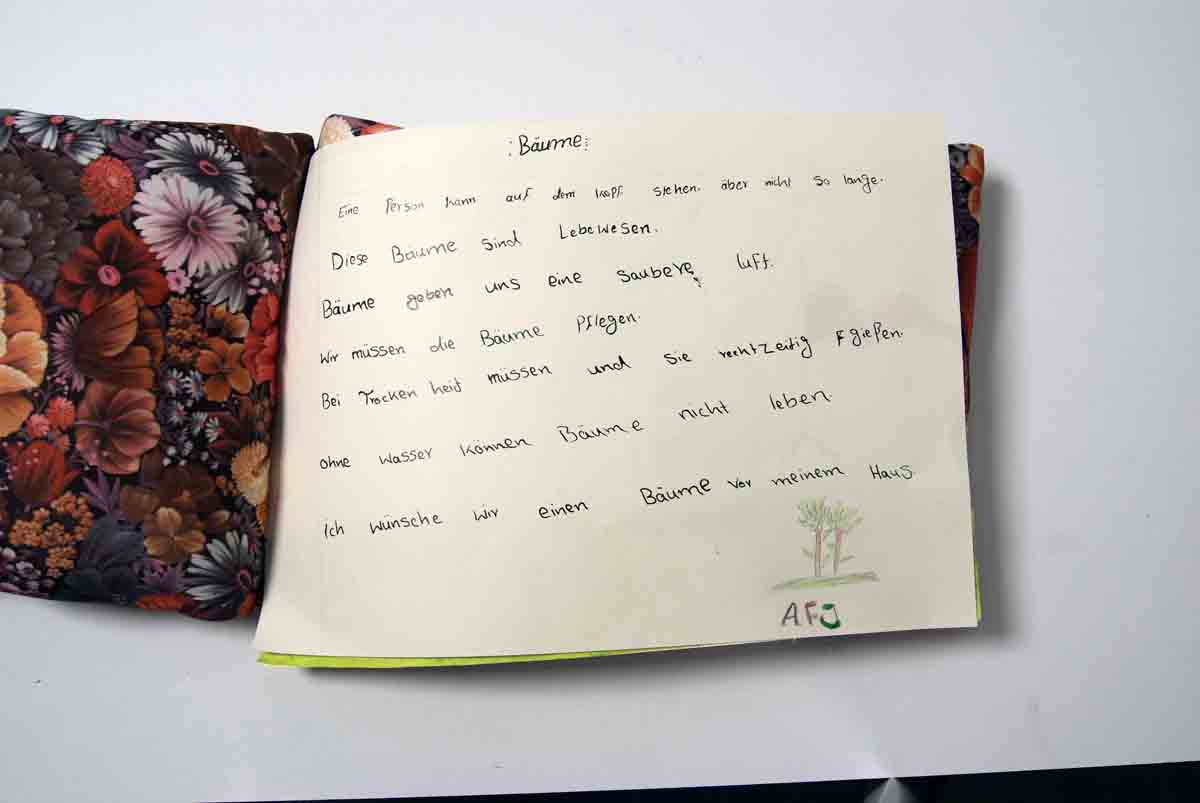 : Bäume :
Eine Person kann auf dem kopf stehen. äber nicht so lange.
Diese Bäume sind Lebewesen.
Bäume geben uns eine saubere luft.
Wir müssen die Bäume Pflegen.
Bei Trocken heit müssen und sie rechtzeitig gießen.
ohne wasser können Bäume nicht leben.
ich wünsche wir einen Bäume vor meinem Haus.
A.F.J